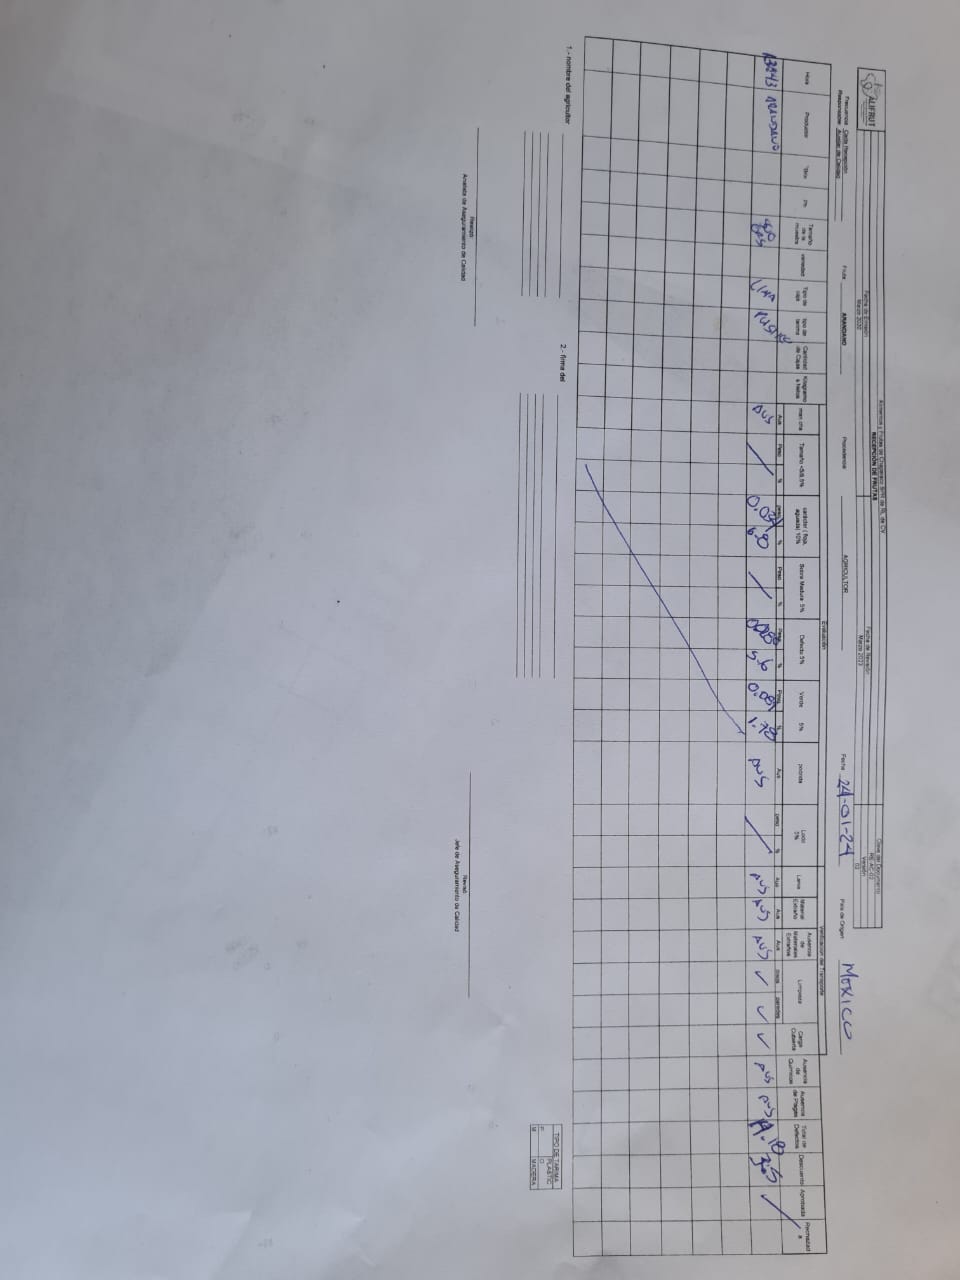 ALIFRUT
Alimentos y Frutas de Chaparaco SPR de RL de CV
RECEPCIÓN DE FRUTAS
Fecha de Emisión
Marzo 2020
Fecha de Revisión
Marzo 2023
Clave del Documento
RE-AC-02
Versión
02
Frecuencia: Cada Recepción
Responsable: Auxiliar de Calidad
Fruta: ARANDANO
Procedencia: AGRICULTOR
Fecha 24-01-24
País de Origen: MEXICO
Evaluación
Verificación del Transporte
Hora Productor °Brix Ph Tamaño de la muestra variedad Tipo de caja tipo de tarima Cantidad de Cajas Kilogramos Netos mancha Tamaño <5/8,5% carácter ( floja, aguada) 10% Sobre Madura 5% Defecto 5% Verde 5% podrida Lodo 5% Lama Material Extraño Ausencia de Materiales Extraños Limpieza Carga Cubierta Ausencia de Químicos Ausencia de Plagas Total de Defectos Descuento Aprobada Rechazada
Aus Peso % peso % Peso % Peso % Peso % Aus peso % Aus Aus Aus pisos paredes
ARANDANO 500 AUS 6.8 5.6 1.78 AUS AUS AUS AUS ✓ ✓ ✓ AUS AUS 14.18 3.5
1.- nombre del agricultor
2.- firma del
TIPO DE TARIMA
P PLASTICO
M MADERA
Realizó
Analista de Aseguramiento de Calidad
Revisó
Jefe de Aseguramiento de Calidad